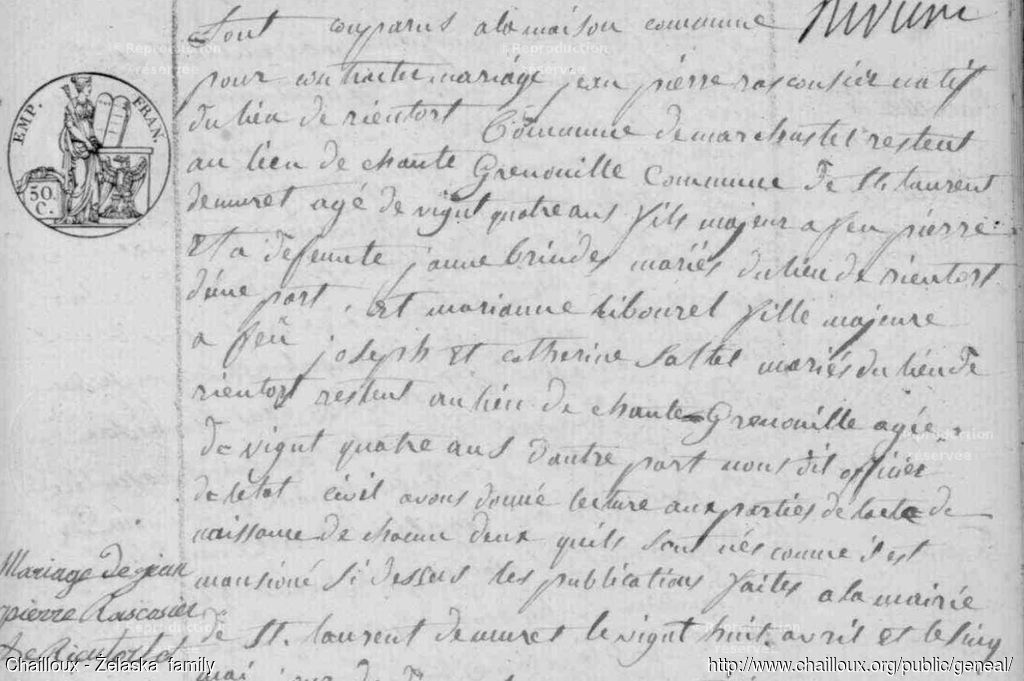 Sont comparus a la maison commune
pour contracter mariage jean pierre rasconsier natif
du lieu de rientort Commune de marchastel restent
au lieu de chante Grenouille Commune de St. laurent
demuret agé de vignt quatre ans fils majeur a feu pierre
Et a defeunte jeanne brindes mariés du lieu de rientort
d'une part, et marianne hibourel fille majeure
a feu joseph Et catherine saltel mariés du lieu de
rientort restent au lieu de chante Grenouille agée
de vignt quatre ans d'autre part nous dit officier
de létat civil avons donné lecture aux parties de lacte de
naissance de chacun deux quils sont nés comme il est
mansioné si dessus les publications faites a la mairie
de St. laurent demuret le vignt huit avril et le sinq
mai
EMP. FRAN.
50.
C.
Mariage de jean
pierre Rascosier
de Rientortet
Reproduction
réservée
Reproduction
réservée
Reproduction
réservée
Chailloux - Żelaska family
http://www.chailloux.org/public/geneal/